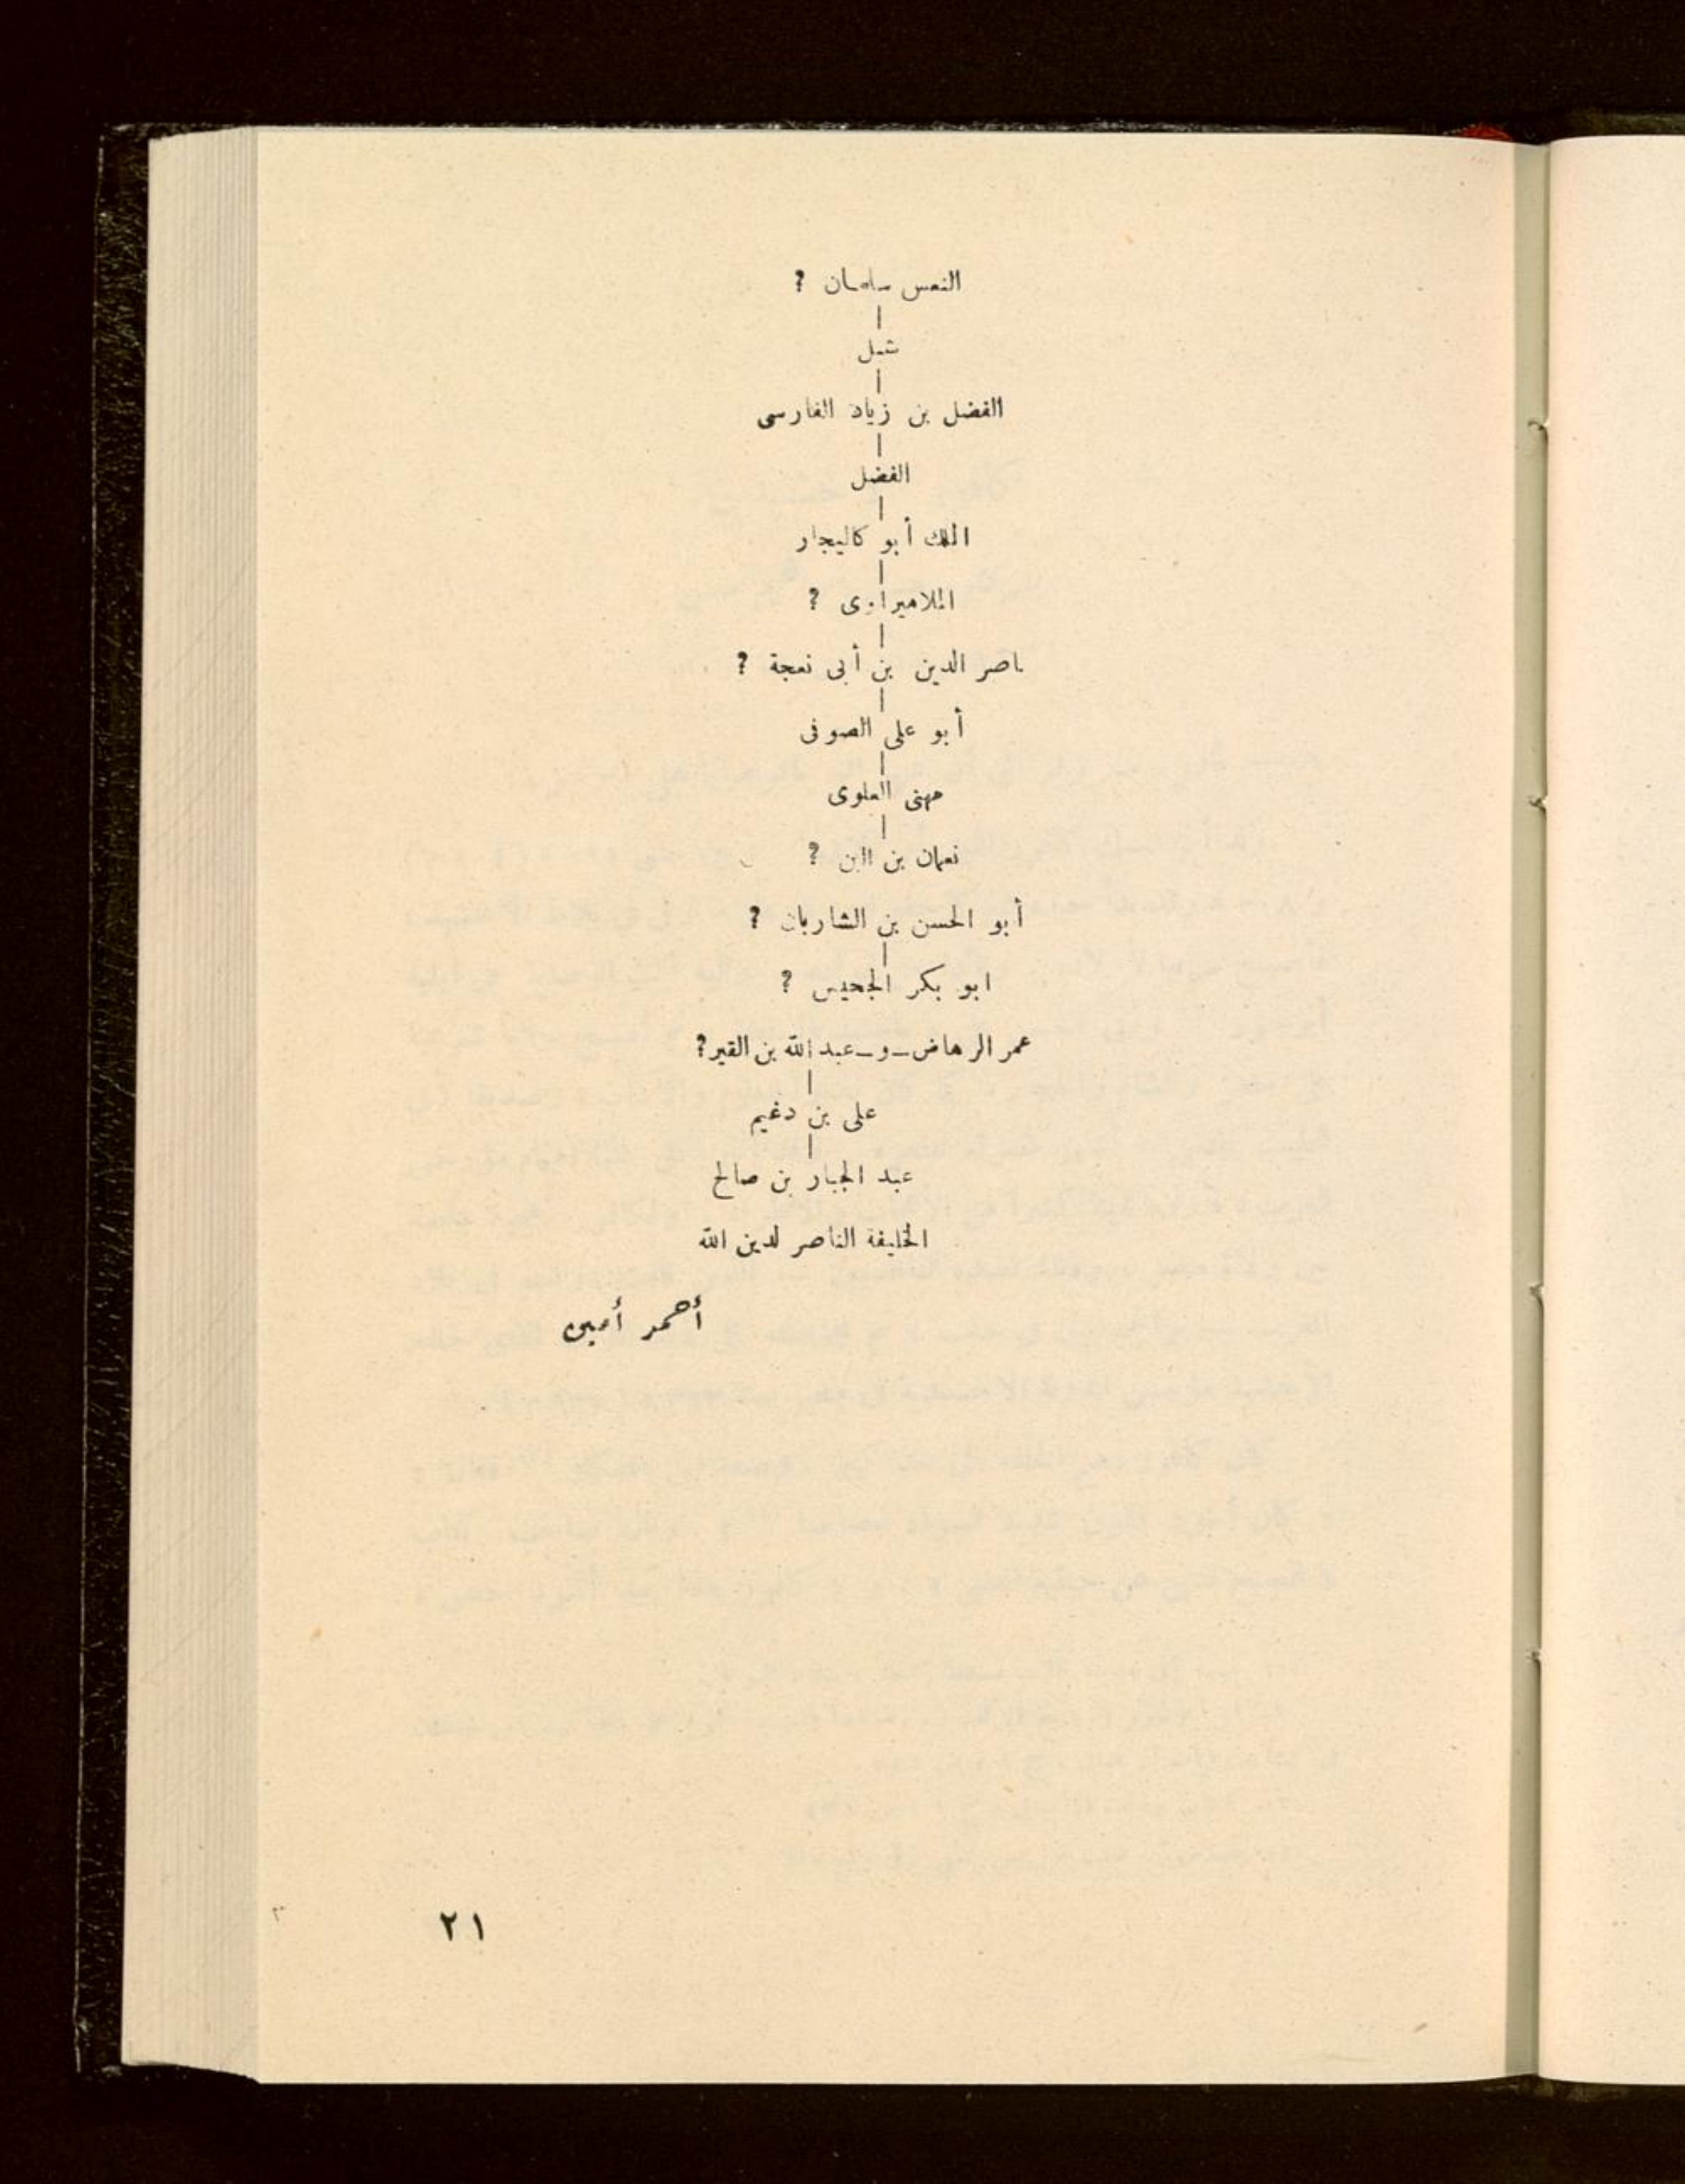 النعس سلمان ?
شبل
الفضل بن زياد الفارسى
الفضل
الملك أبو كاليجار
الملاهيراوى ?
ناصر الدين بن أبى نعجة ?
أبو على الصوفى
مهنى العلوى
نعمان بن البن ?
أبو الحسن بن الشاربان ?
ابو بكر الجحيس ?
عمر الرهاض ـ و ـ عبد الله بن القير ?
على بن دغيم
عبد الجبار بن صالح
الخليفة الناصر لدين الله
أحمد أمين
٢١